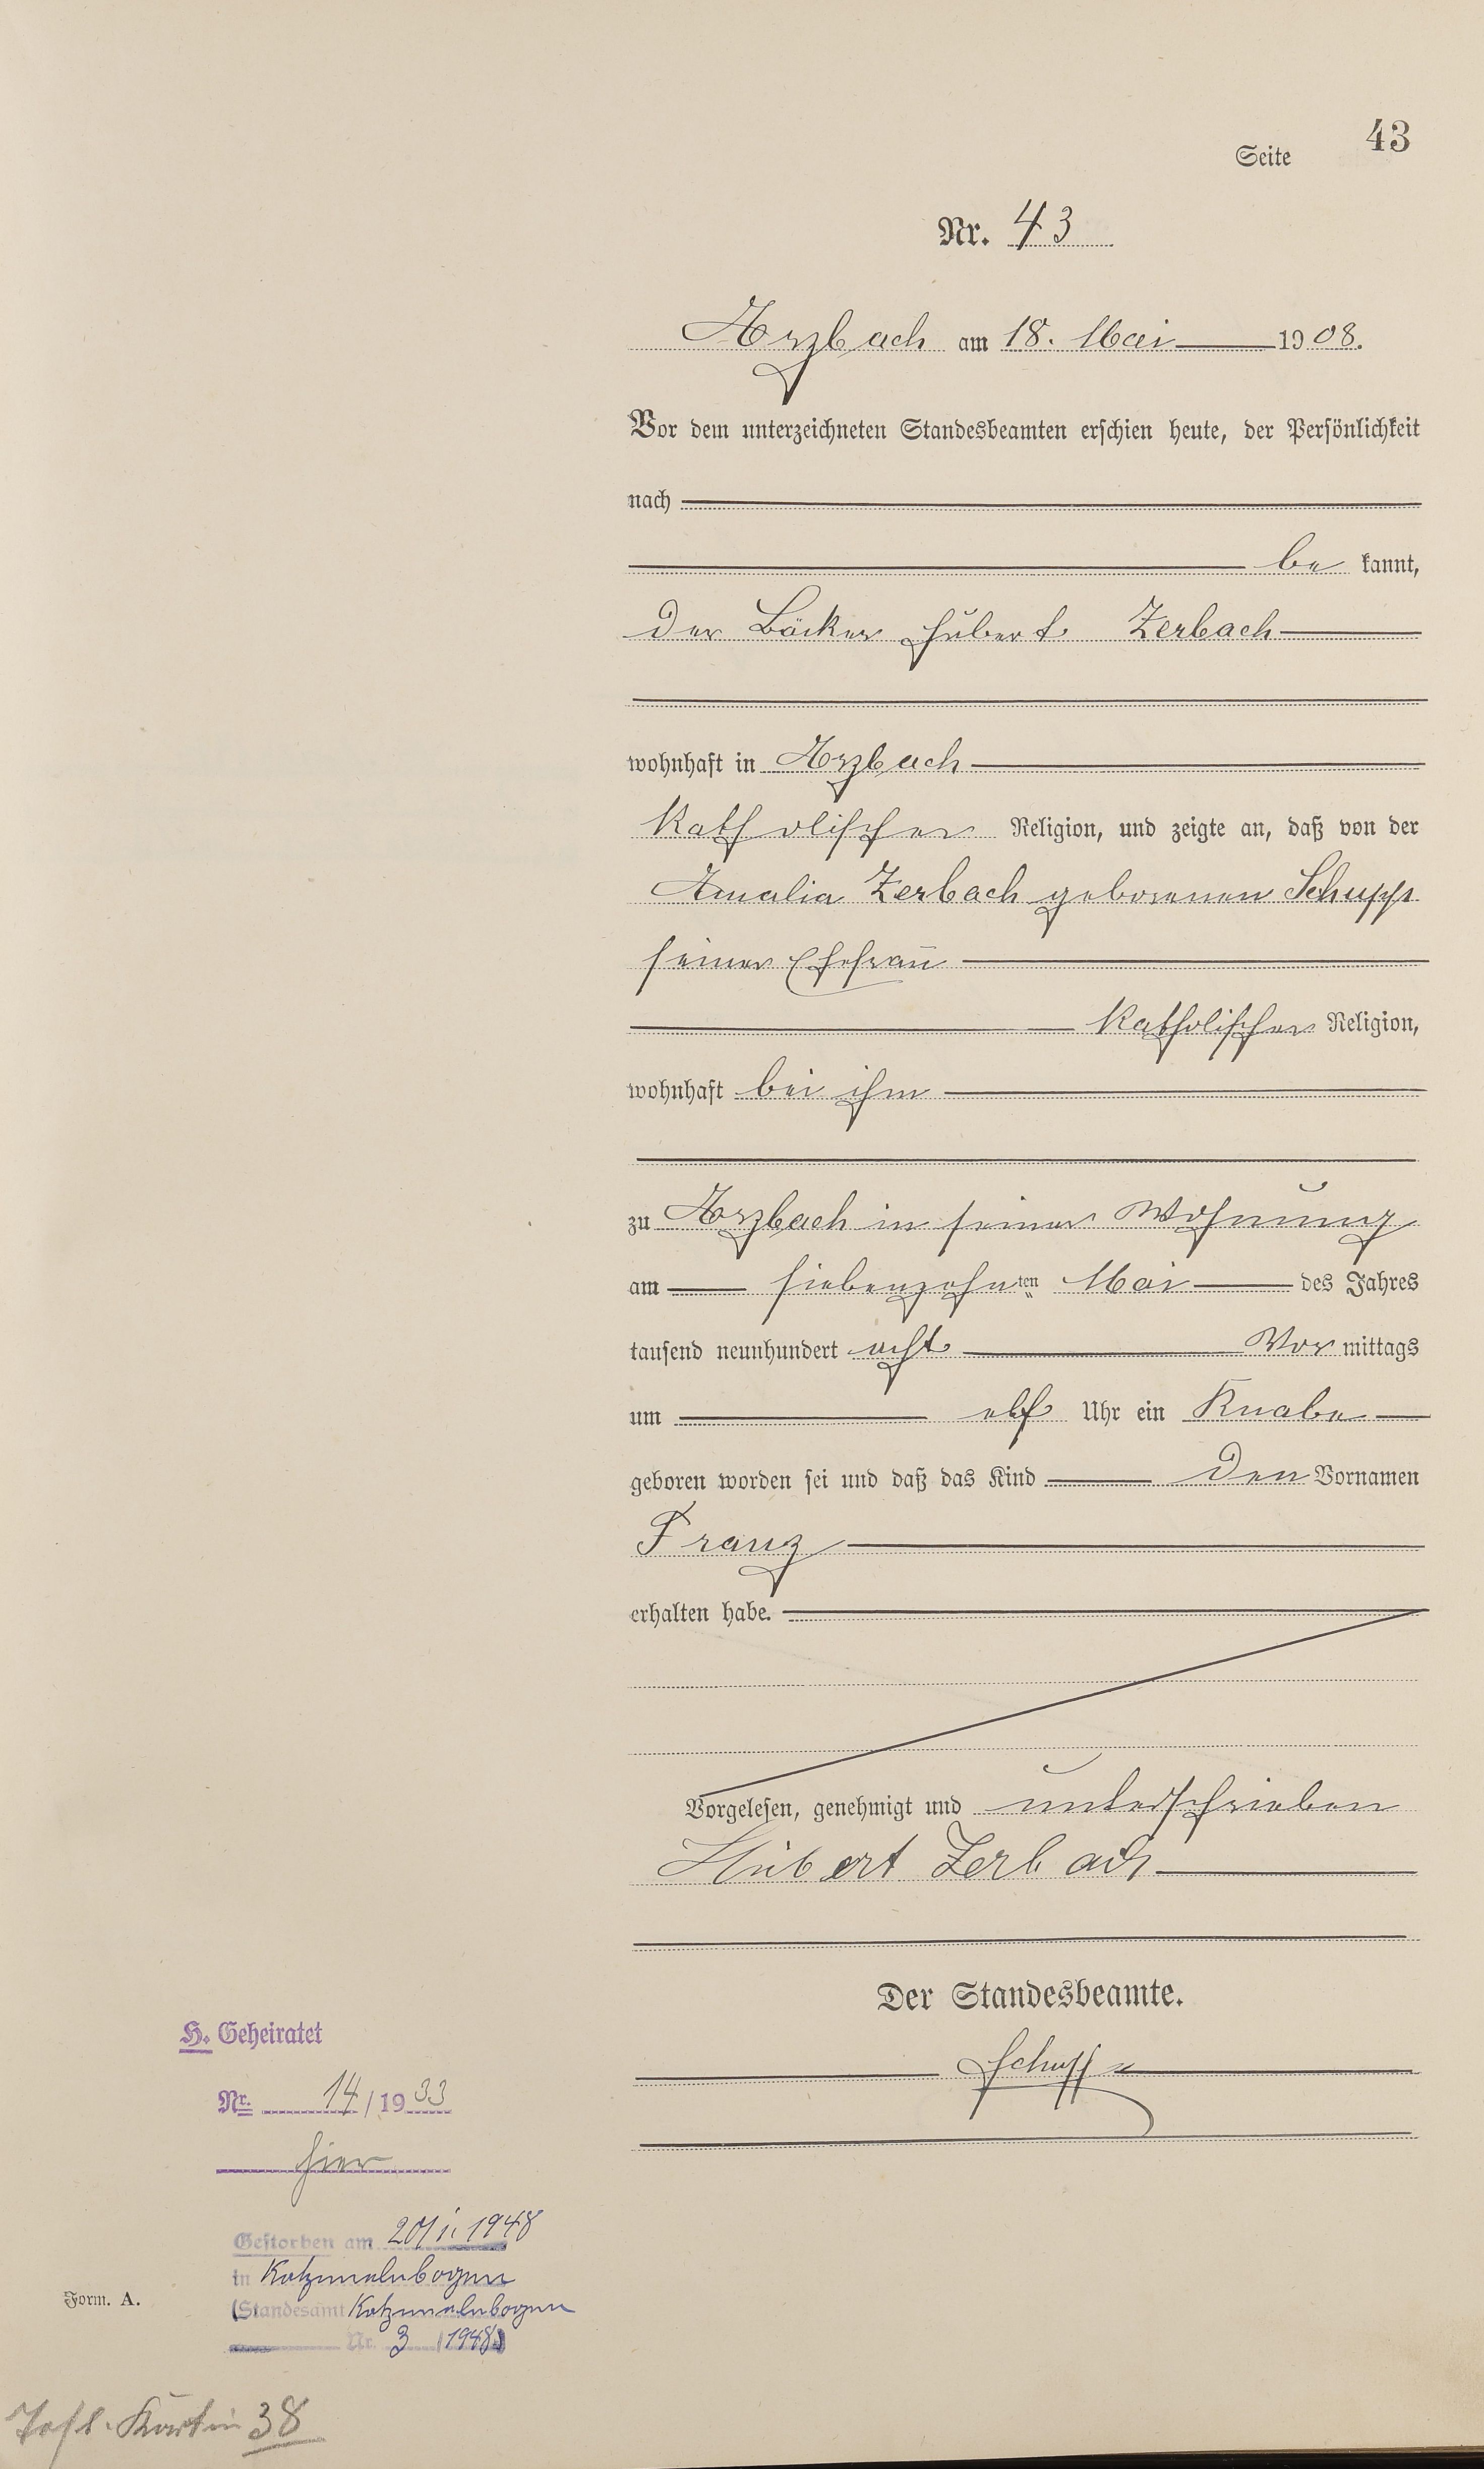 Seite 43
Nr. 43
Arzbach am 18. Mai 1908.
Vor dem unterzeichneten Standesbeamten erschien heute, der Persönlichkeit
nach
be kannt,
der Bäcker Hubert Zerbach
wohnhaft in Arzbach
katholischer Religion, und zeigte an, daß von der
Amalia Zerbach geborenen Schupp
seiner Ehefrau
katholischer Religion,
wohnhaft bei ihm
zu Arzbach in seiner Wohnung
am siebenzehnten Mai des Jahres
tausend neunhundert acht Vor mittags
um elf Uhr ein Knabe
geboren worden sei und daß das Kind den Vornamen
Franz
erhalten habe.
Vorgelesen, genehmigt und unterschrieben
Hubert Zerbach
Der Standesbeamte.
Schupp
H. Geheiratet
Nr. 14/1933
hier
Gestorben am 1948
in Katzenelnbogen
(Standesamt Katzenelnbogen
Nr. 3 /1948)
Form. A.
38